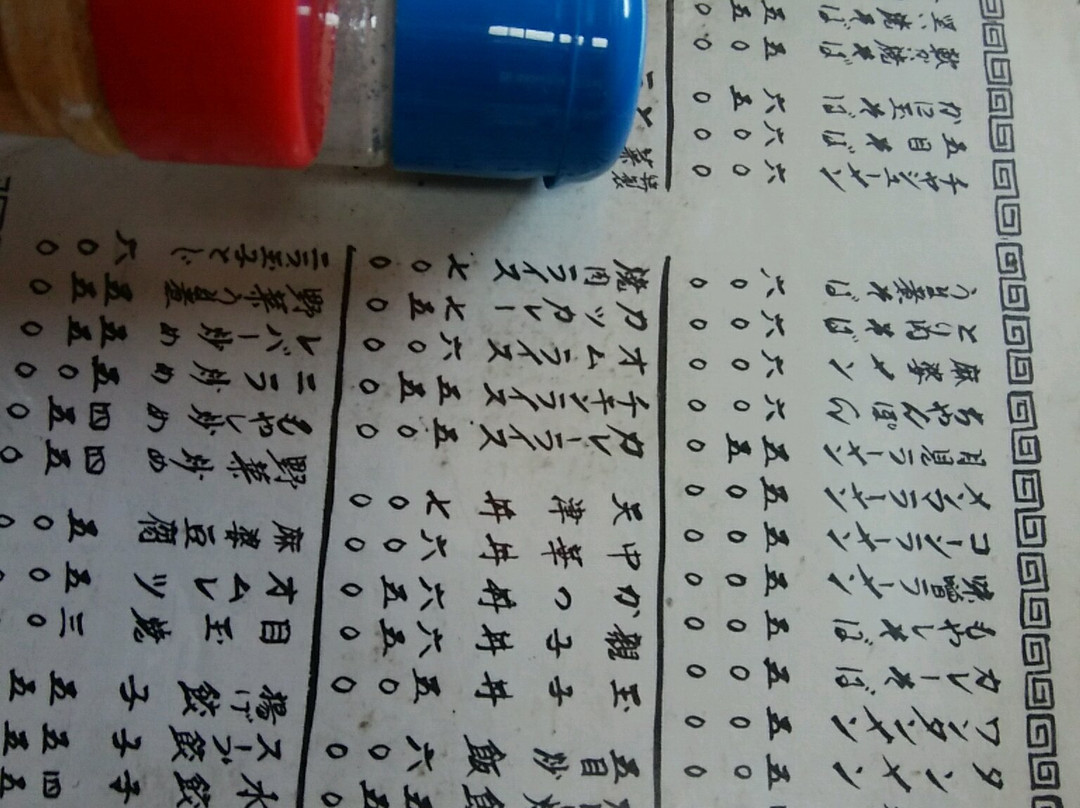 タンメン 五〇〇
ワンタンメン 五〇〇
カレーそば 五〇〇
もやしそば 五〇〇
味噌ラーメン 五〇〇
コーンラーメン 五〇〇
メンマラーメン 五〇〇
月見ラーメン 五五〇
ちゃんぽん 六〇〇
麻婆メン 六〇〇
とり肉そば 六〇〇
うま煮そば 六〇〇
チャシューメン 六〇〇
五目そば 六〇〇
かに玉そば 六五〇
軟か焼そば 五〇〇
焼そば 五五〇
五目炒飯 六〇〇
玉子丼 五〇〇
親子丼 六五〇
かつ丼 六五〇
中華丼 六〇〇
天津丼 七〇〇
カレーライス 五〇〇
チキンライス 五五〇
オムライス 六〇〇
カツカレー 七五〇
焼肉ライス 七〇〇
特製
水餃子 四五
スープ餃子 五五
揚げ餃子 五五
目玉焼 三〇
オムレツ 五〇
麻婆豆腐 五〇〇
野菜炒め 四五〇
もやし炒め 四五〇
ニラ炒め 五〇〇
レバー炒め 五五〇
野菜うま煮 五五〇
ニラ玉子とじ 六〇〇